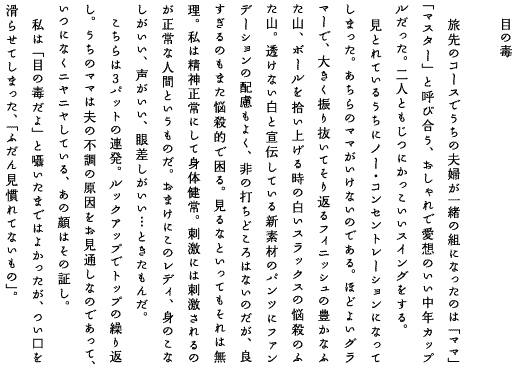 目の毒
旅先のコースでうちの夫婦が一緒の組になったのは「ママ」
「マスター」と呼び合う、おしゃれで愛想のいい中年カップ
ルだった。二人ともじつにかっこいいスイングをする。
見とれているうちにノー・コンセントレーションになって
しまった。あちらのママがいけないのである。ほどよいグラ
マーで、大きく振り抜いてそり返るフィニッシュの豊かなふ
た山、ボールを拾い上げる時の白いスラックスの悩殺のふ
た山。透けない白と宣伝している新素材のパンツにファン
デーションの配慮もよく、非の打ちどころはないのだが、良
すぎるのもまた悩殺的で困る。見るなといってもそれは無
理。私は精神正常にして身体健常。刺激には刺激されるの
が正常な人間というものだ。おまけにこのレディ、身のこな
しがいい、声がいい、眼差しがいい…ときたもんだ。
こちらは3パットの連発。ルックアップでトップの繰り返
し。うちのママは夫の不調の原因をお見通しなのであって、
いつになくニヤニヤしている、あの顔はその証し。
私は「目の毒だよ」と囁いたまではよかったが、つい口を
滑らせてしまった、「ふだん見慣れてないもの」。